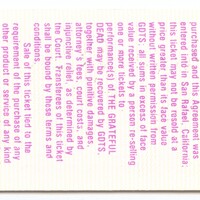 purchased and this Agreement was
entered into in San Rafael, California;
this ticket may not be resold at a
price greater than its face value
without written permission from
GDTS; all sums in excess of face
value received by a person re-selling
one or more tickets to
performance(s) of THE GRATEFUL
DEAD may be recovered by GDTS,
together with punitive damages,
attorney's fees, court costs, and
injunctive relief as determined by
the Court. Transferees of this ticket
shall be bound by these terms and
conditions.
Sale of this ticket tied to the
requirement of the purchase of any
other product or service of any kind